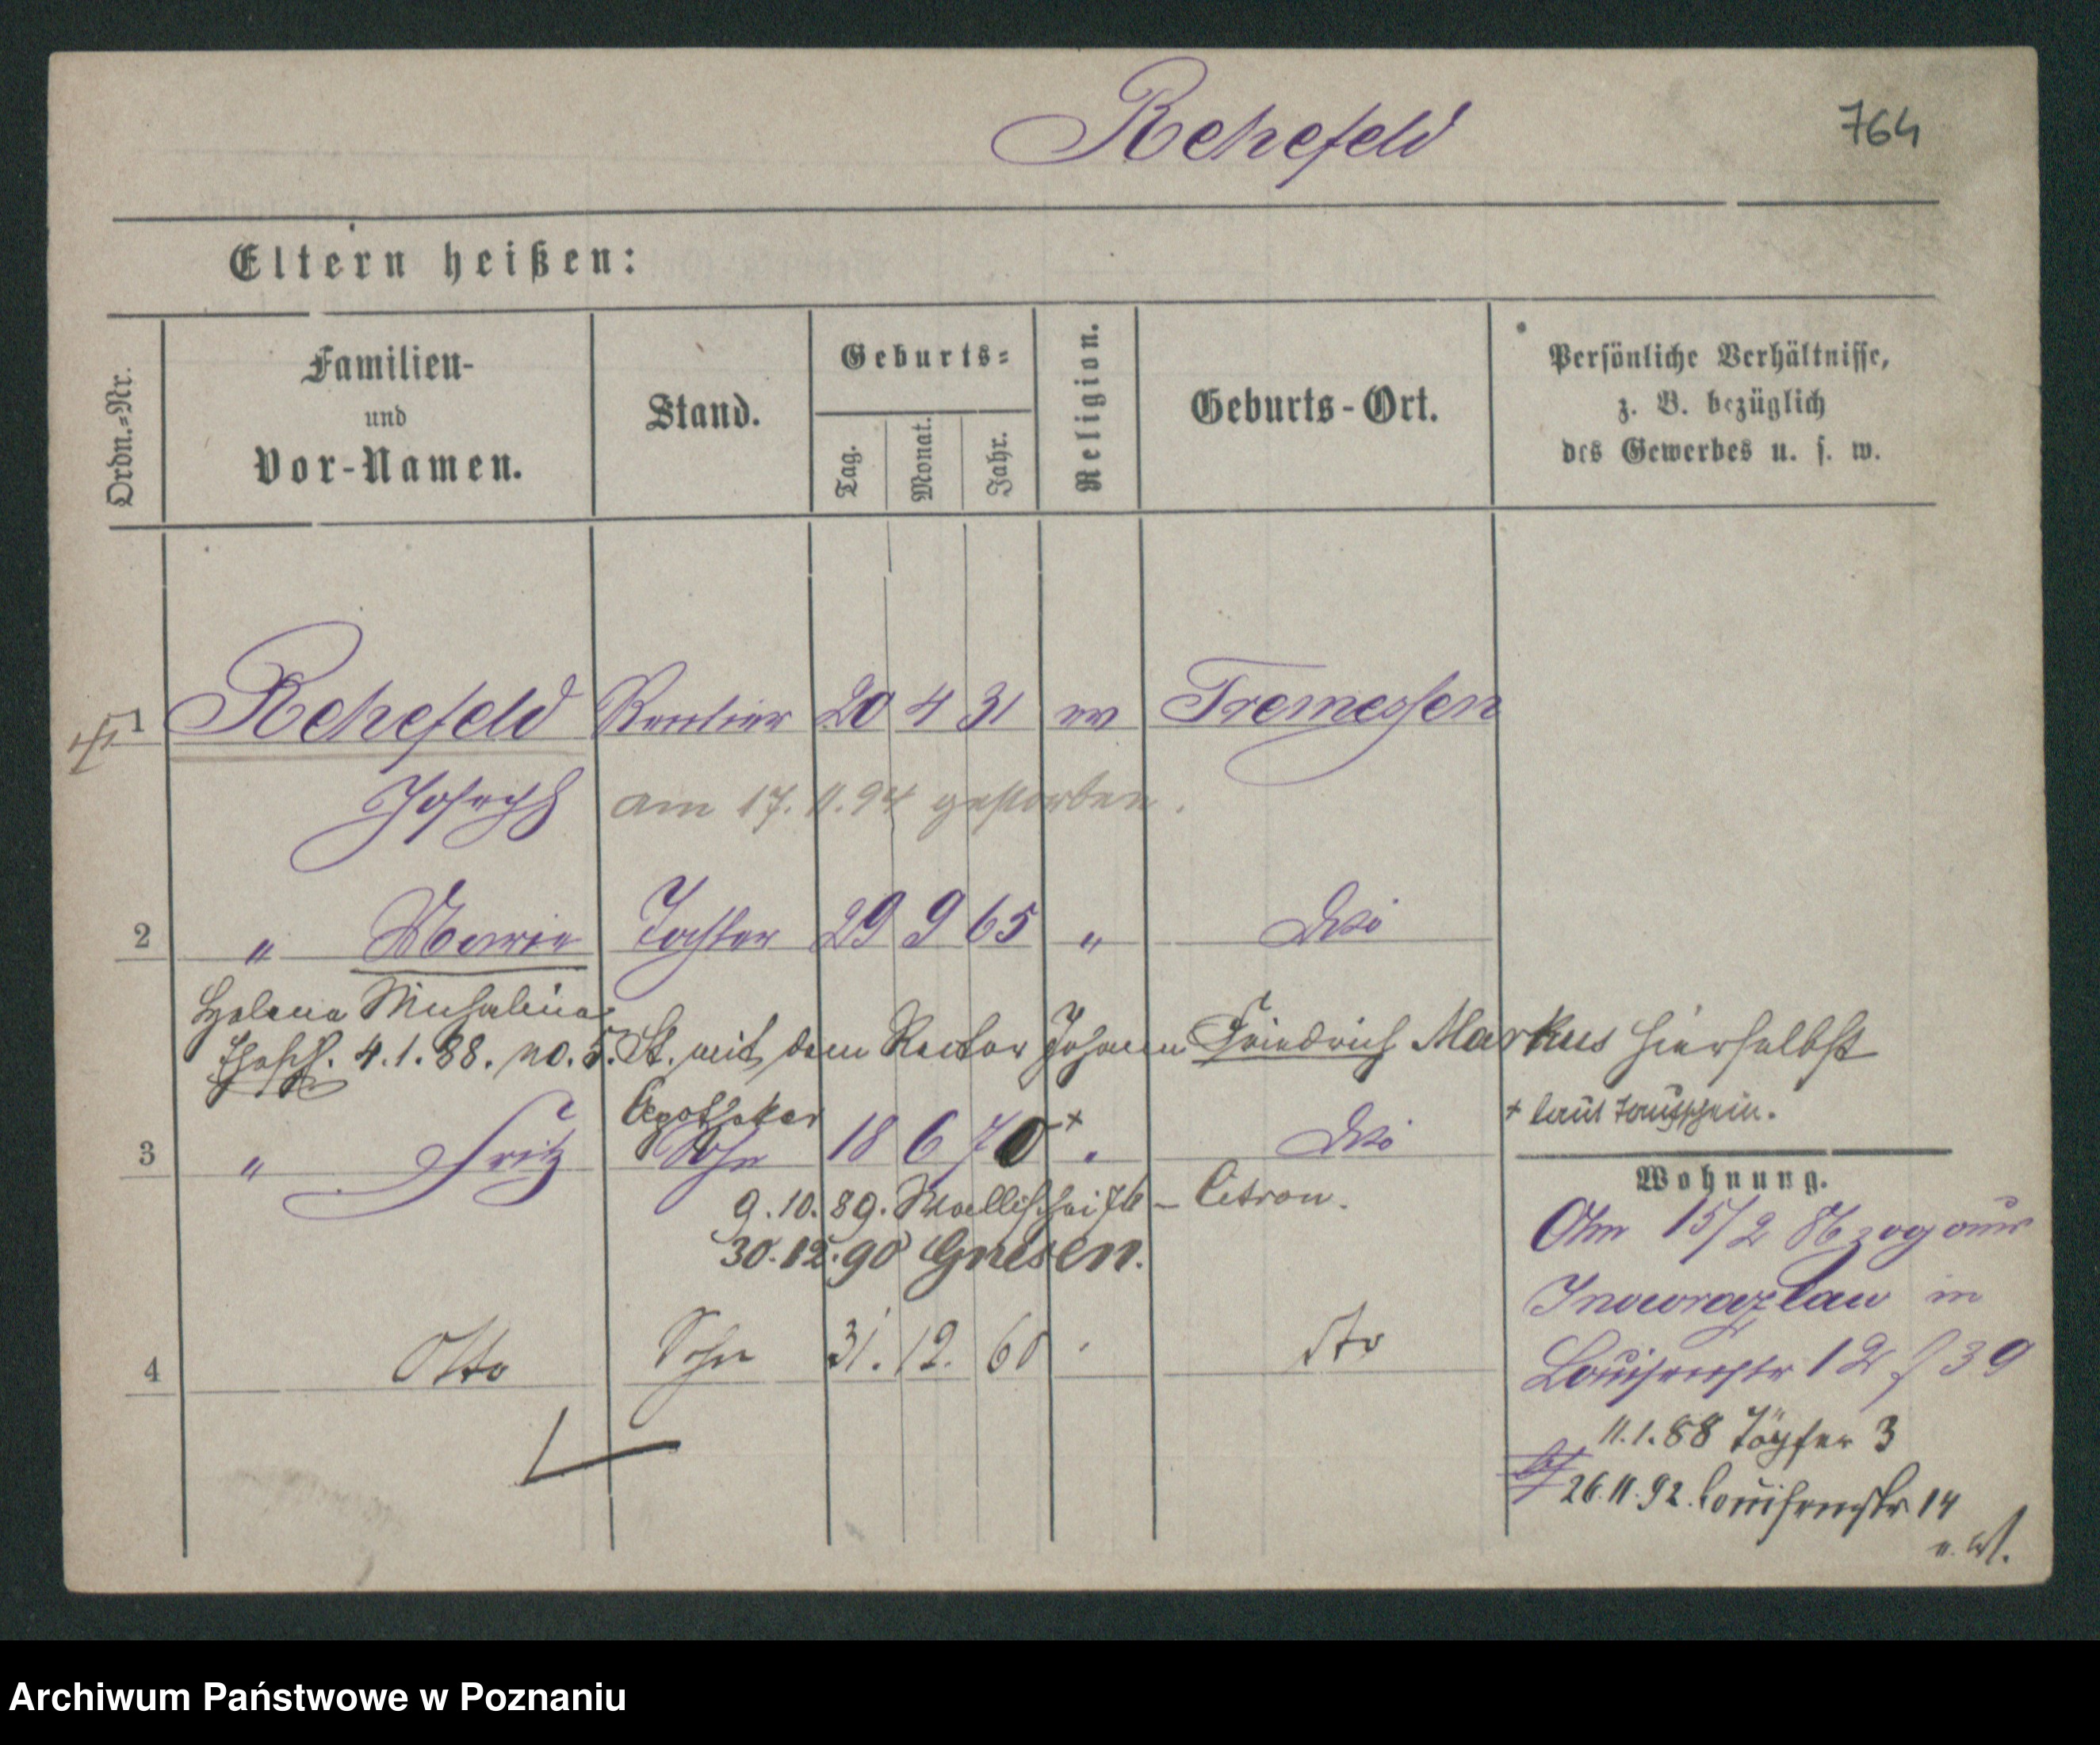 Rehefeld
764
Eltern heißen:
Ordn.=Nr.
Familien-
und
Vor-Namen.
Stand.
Geburts=
Tag.
Monat.
Jahr.
Religion.
Geburts-Ort.
Persönliche Verhältnisse,
z. B. bezüglich
des Gewerbes u. s. w.
1 Rehefeld Rentier 20 4 31 Tremessen
Joseph am 17. 11. 94 gestorben.
2 " Marie Tochter 29 9 65 " dto
Helena Michalina
4. 1. 88. no. 5. St. mit dem Rector Johann Friedrich Markus hierselbst
Apotheker
3 " Fritz Sohn 18 6 70 + " dto
+ laut Taufschein.
9. 10. 89. Wallischei 76 – Citron.
30. 12. 90 Gnesen.
4 Otto Sohn 31. 12. 60 dto
Wohnung.
Am 15/2 86 zog aus
Inowrazlaw in
Louisenstr 12 f 39
11. 1. 88 Töpfer 3
26. 11. 92. Louisenstr 14
Archiwum Państwowe w Poznaniu